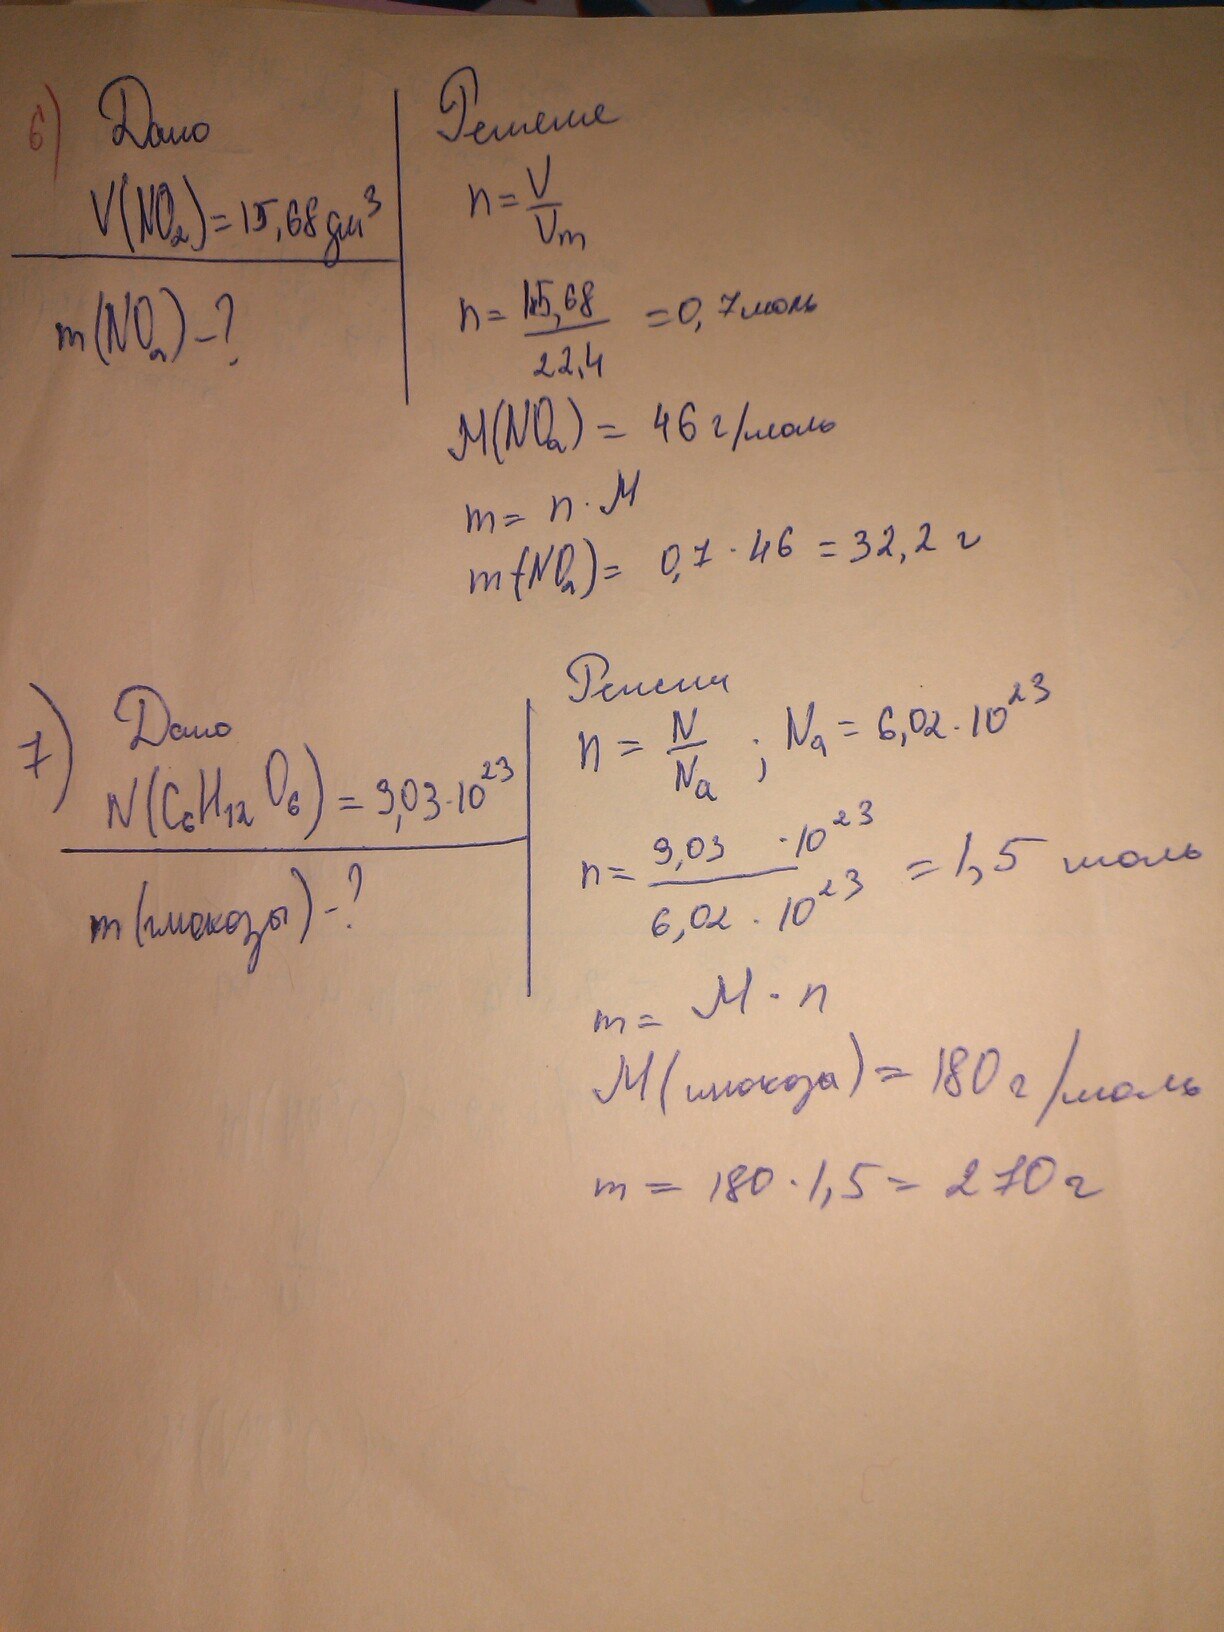 6) Дано
V(NO₂)=15,68 дм³
m(NO₂)-?
Решение
n=V/Vm
n=15,68/22,4=0,7 моль
M(NO₂)=46 г/моль
m=n·M
m(NO₂)=0,7·46=32,2 г
7) Дано
N(C₆H₁₂O₆)=9,03·10²³
m(глюкозы)-?
Решени
n=N/Na; Na=6,02·10²³
n=9,03·10²³/6,02·10²³=1,5 моль
m=M·n
M(глюкоза)=180 г/моль
m=180·1,5=270 г